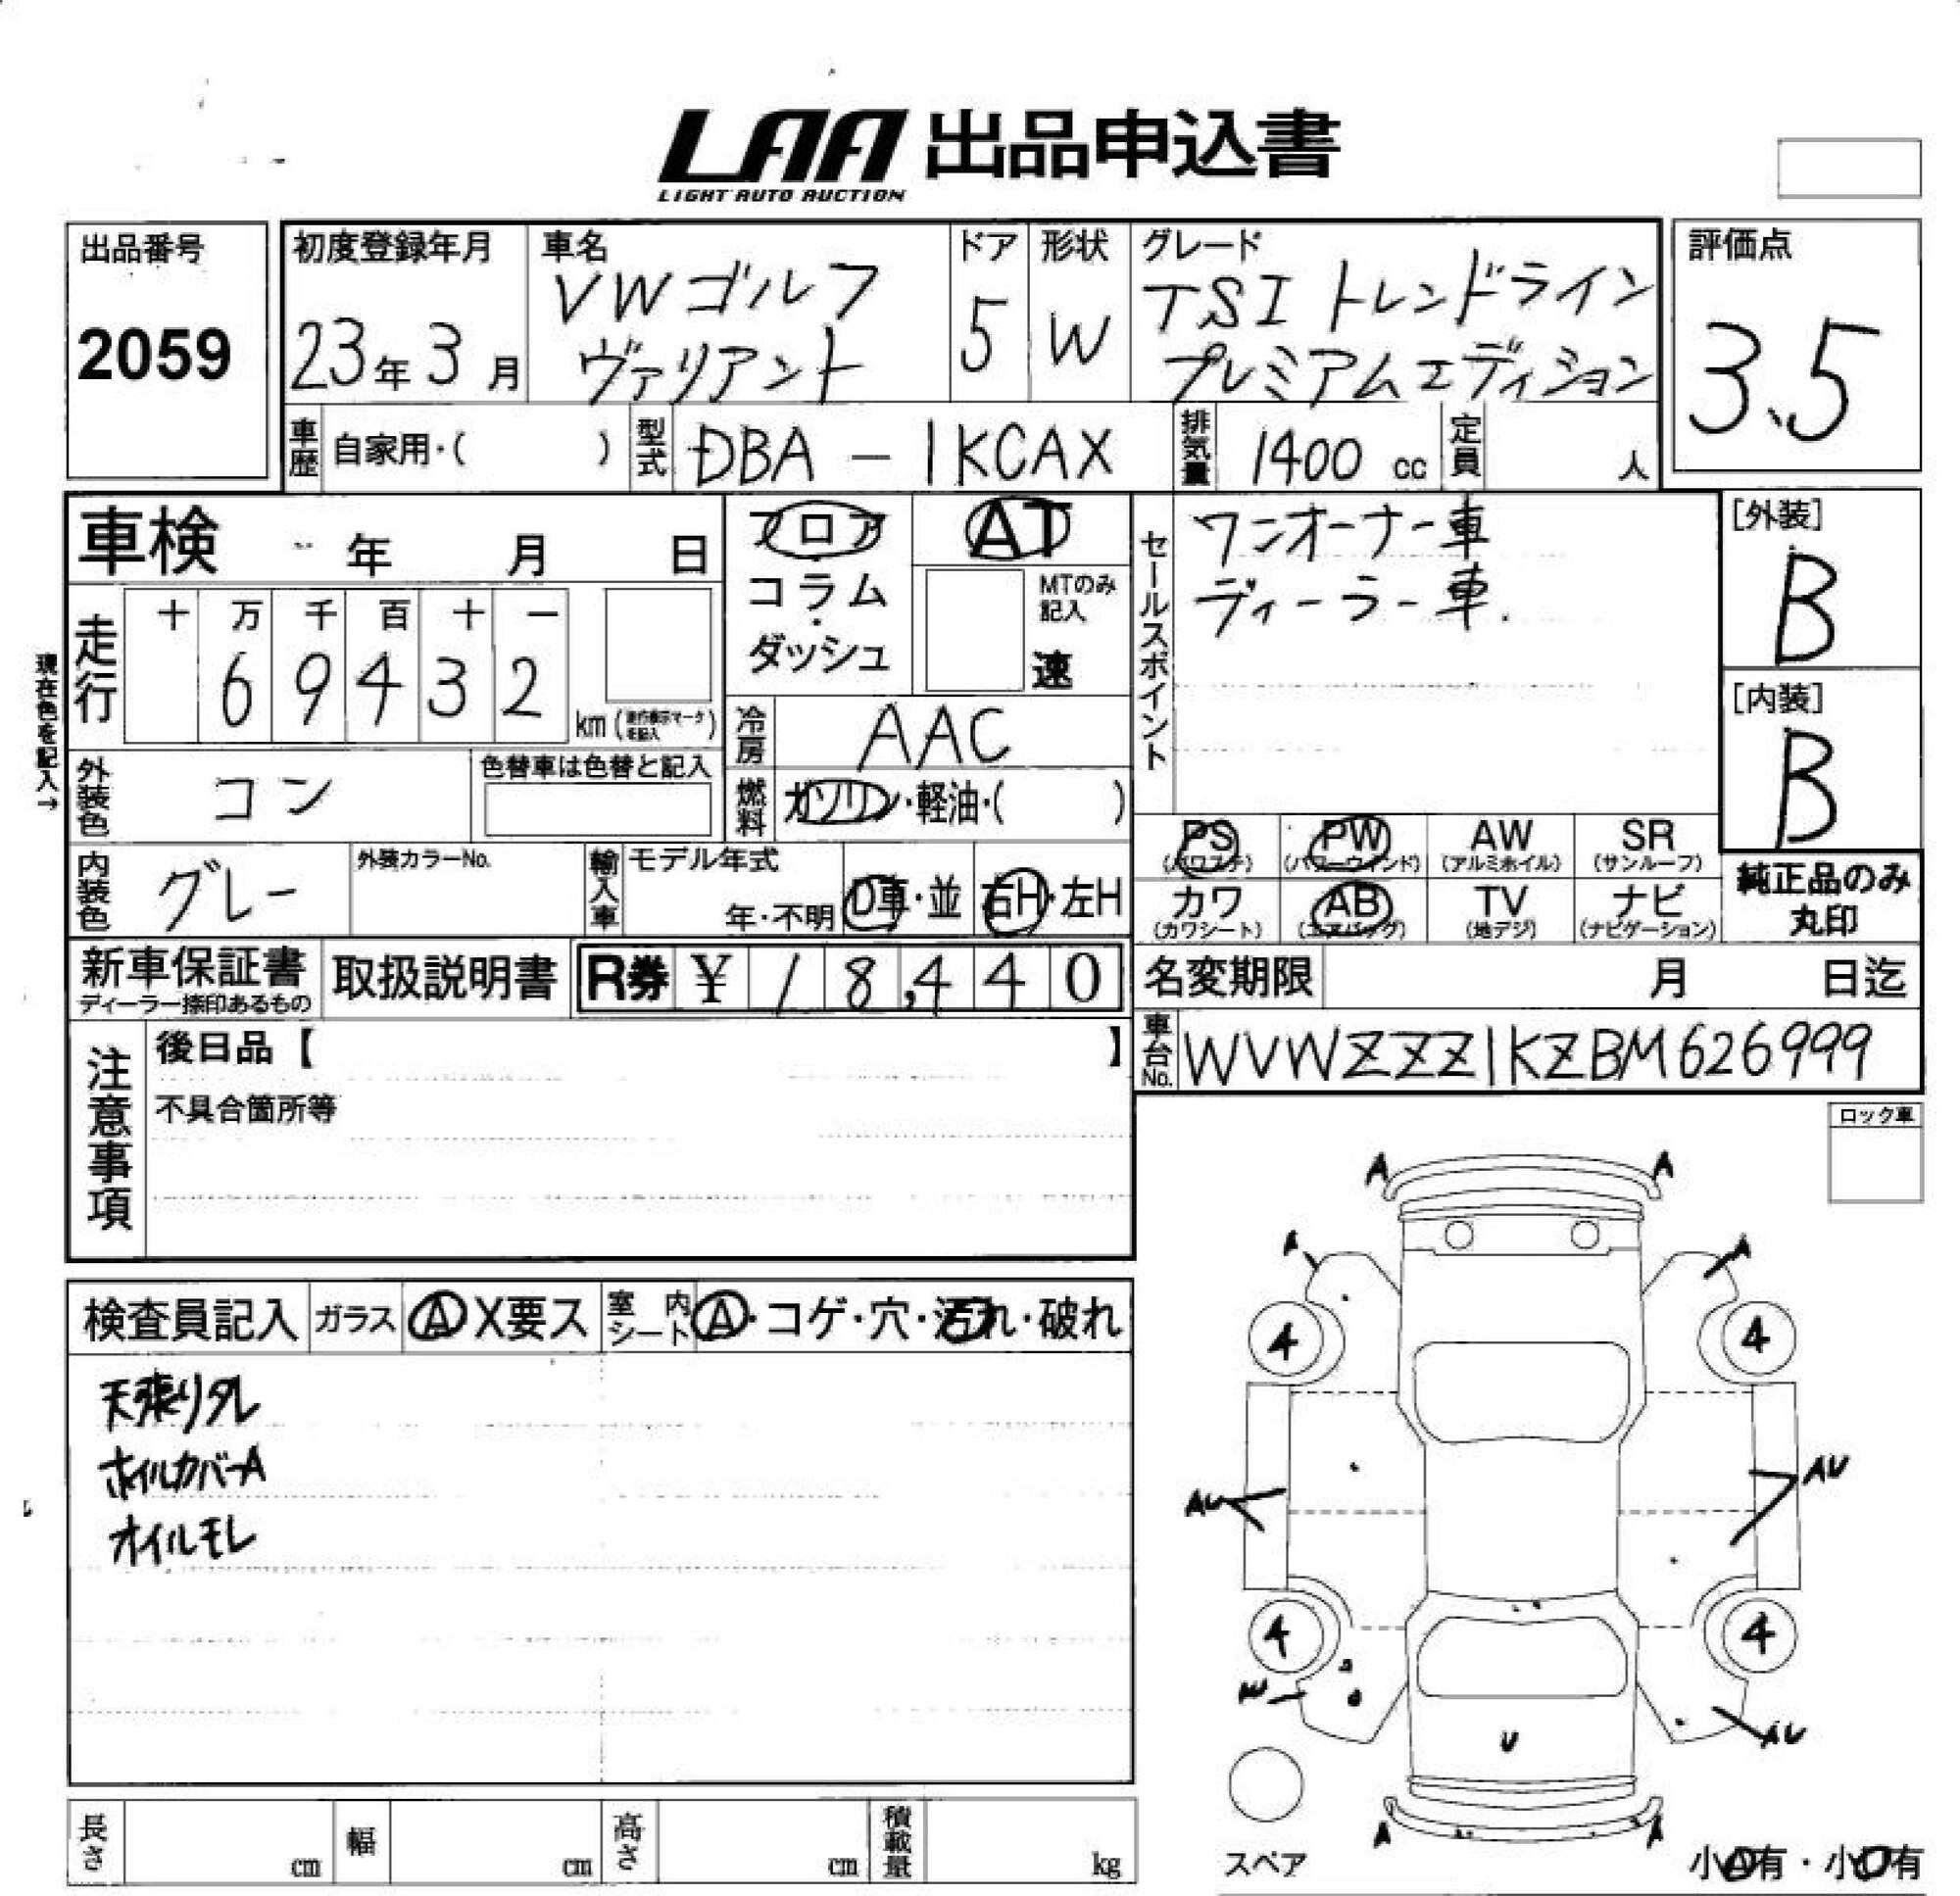 LAA 出品申込書
LIGHT AUTO AUCTION
出品番号
2059
初度登録年月
23年3月
車名
VWゴルフ
ヴァリアント
ドア
5
形状
W
グレード
TSI トレンドライン
プレミアムエディション
評価点
3.5
車歴 自家用・( )
型式 DBA-1KCAX
排気量 1400 cc
定員 人
車検 年 月 日
フロア
・
コラム
・
ダッシュ
AT
MTのみ
記入
速
セールスポイント
ワンオーナー車
ディーラー車.
[外装]
B
[内装]
B
走行
十 万 千 百 十 一
6 9 4 3 2
km
現在色を記入→
冷房 AAC
外装色 コン
色替車は色替と記入
燃料 ガソリン・軽油・( )
内装色 グレー
外装カラーNo.
輸入車
モデル年式
年・不明
D車・並
右H・左H
PS
(パワステ)
PW
(パワーウィンド)
AW
(アルミホイル)
SR
(サンルーフ)
カワ
(カワシート)
AB
(エアバッグ)
TV
(地デジ)
ナビ
(ナビゲーション)
純正品のみ
丸印
新車保証書
ディーラー捺印あるもの
取扱説明書
R券 ¥ 18,440
名変期限 月 日迄
車台No. WVWZZZ1KZBM626999
注意事項
後日品【 】
不具合箇所等
ロック車
検査員記入
ガラス A X要ス
室内シート A・コゲ・穴・汚れ・破れ
天張りタレ
ホイルカバーA
オイルモレ
A A
A A
4 4
AU AU
4 4
AU
U
A A
スペア
長さ cm
幅 cm
高さ cm
積載量 kg
小A有・小U有